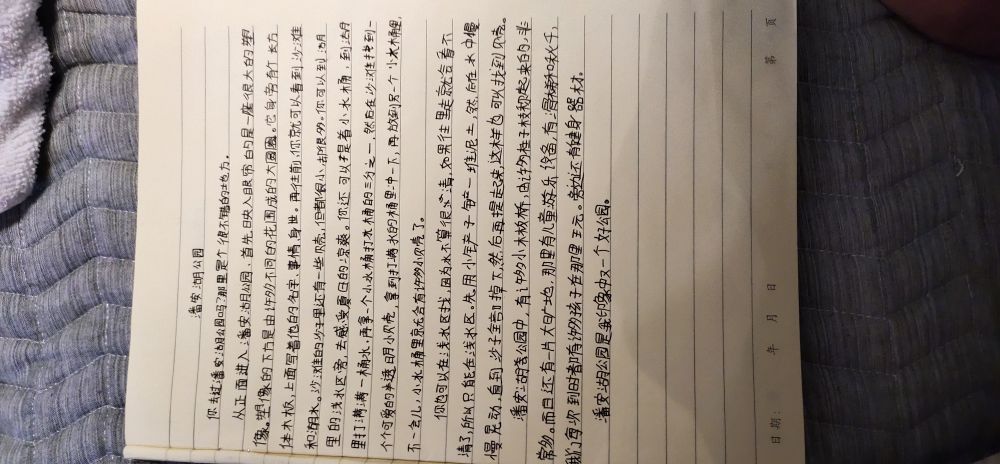 潘安湖公园
你去过潘安湖公园吗?那里是个很不错的地方。
从正面进入潘安湖公园,首先映入眼帘的是一座很大的塑
像。塑像的下方是由许多不同的花围成的大圆圈。它身旁有个长方
体木板,上面写着他的名字、事情、身世。再往前,你就可以看到沙滩
和湖水。沙滩的沙子里还有一些贝壳,但都很小,却很多。你可以到湖
里的浅水区旁,去感受夏日的凉爽。你还可以提着小水桶,到湖
里打满满一桶水,再拿一个小水桶打水桶的三分之一,然后在沙滩找到一
个个可爱的半透明小贝壳,拿到打满水的桶里冲一下,再放到另一个小水桶里,
不一会儿,小水桶里就会有许多小贝壳了。
你也可以在浅水区找,因为水不算很清,如果往里走就会看不
清了,所以只能在浅水区。先用小铲子铲一堆泥土,然后在水中慢
慢晃动,直到沙子全部掉下,然后再提起来,这样也可以找到贝壳。
潘安湖公园中,有许多小木板桥,由许多柱子枝称起来的,非
常多。而且还有一片大白地,那里有儿童游乐设备,有滑梯和秋千,
我们每次到时都有许多孩子在那里玩。旁边还有健身器材。
潘安湖公园是我印象中又一个好公园。
日期: 年 月 日 第 页